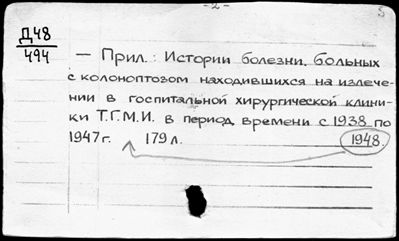 -2-
Д48
494
— Прил.: Истории болезни больных
с колоноптозом находившихся на излече-
нии в госпитальной хирургической клини-
ки Т.Г.М.И. в период времени с 1938 по
1947 г. 179 л. 1948.